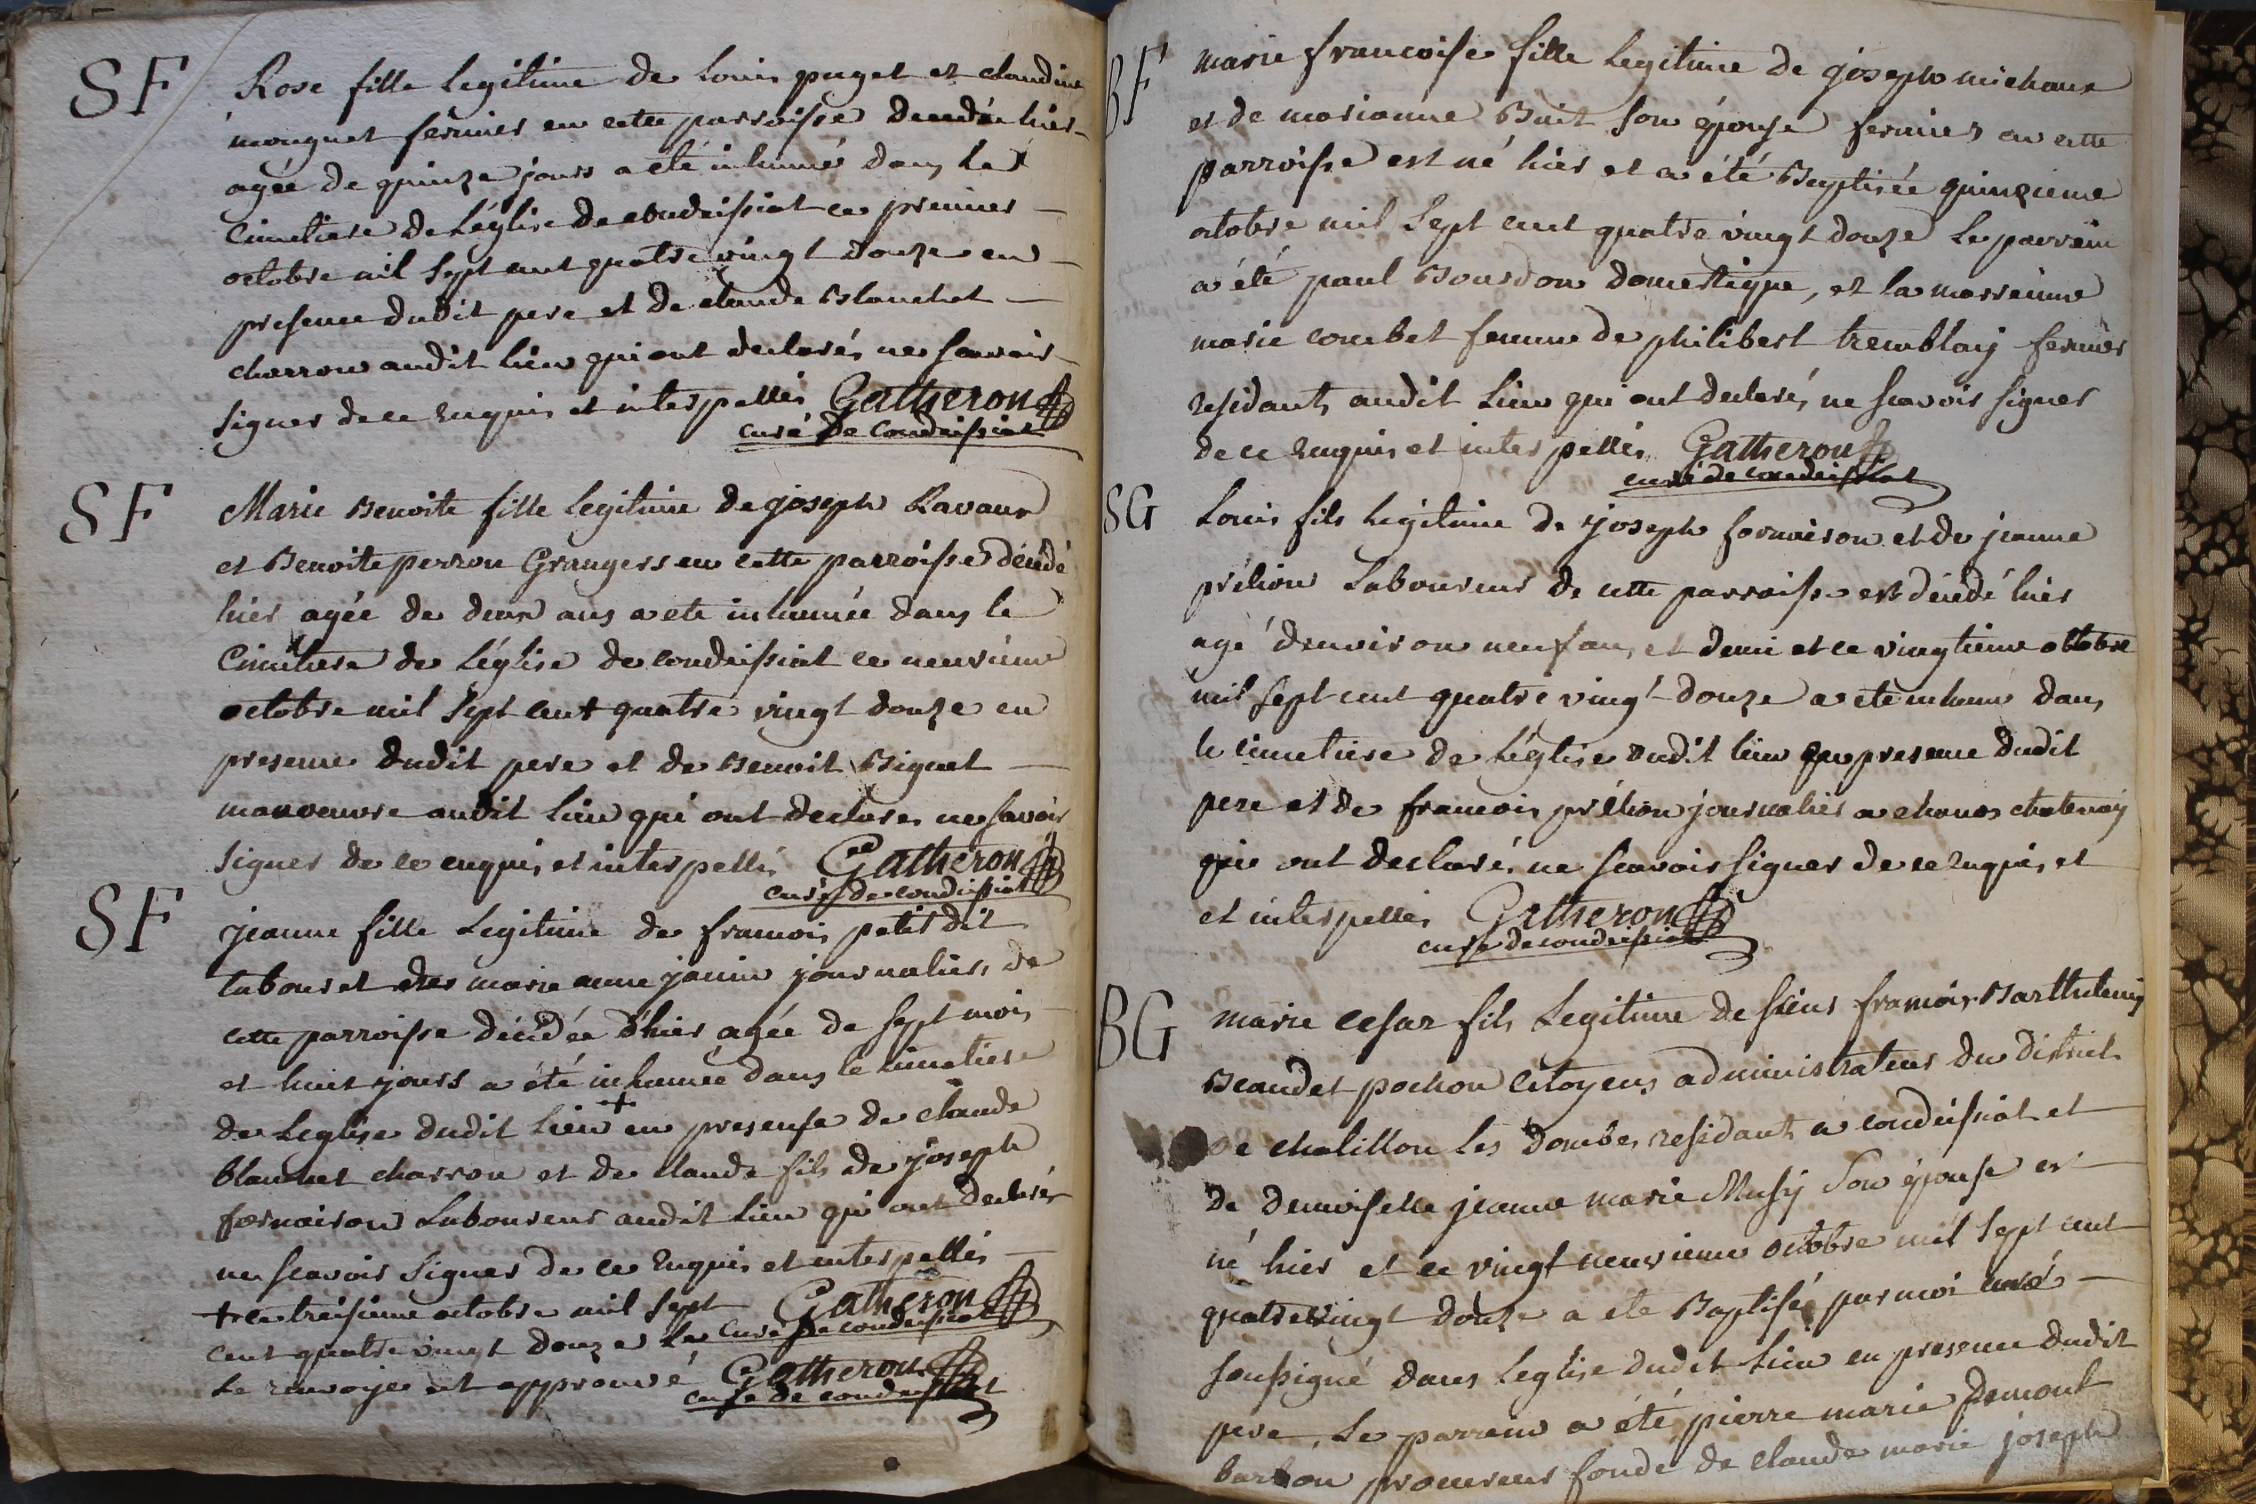 SF
Rose fille legitime de Louis puget et claudine
monguet fermier en cette parroisse decedée hier
agée de quinze jours a été inhumé dans le
Cimetiere de L'église de condeissiat ce premier
octobre mil sept cent quatre vingt douze en
presence dudit pere et de claude Blanchet
charron audit lieu qui ont declarés ne sçavoir
signer de ce enquis et interpellés Gatheron
curé de Condeissiat
SF
Marie Benoite fille legitime de joseph Ravaux
et Benoite perron Grangers en cette parroisse décédé
hier agée de deux ans a ete inhumée dans le
Cimetiere de L'église de condeissiat ce neuvieme
octobre mil sept cent quatre vingt douze en
presence dudit pere et de Benoit Biguet
manoeuvre audit lieu qui ont declares ne savoir
signer de ce enquis et interpellés Gatheron
curé de condeissiat
SF
jeanne fille Legitime de francois petit dit
tabouret et de marie anne janin journalier de
cette parroisse décédée d'hier agée de sept mois
et huit jours a été inhumée dans le cimetiere
de Leglise dudit lieu + en presense de claude
blanchet charron et de claude fils de joseph
fornaison Laboureur audit Lieu qui ont declarés
ne scavoir signer de ce enquis et interpellés
+ ce treisieme octobre mil sept Gatheron
cent quatre vingt douze curé de condeissiat
Le renvoyé est approuvé Gatheron
curé de condeissiat
BF
marie francoise fille Legitime de joseph michaux
et de marianne Buit son épouse fermier en cette
parroisse est né hier et a été Baptisée quinzieme
octobre mil sept cent quatre vingt douze Le parrain
a été paul Bourdon domestique, et la marreinne
marie combet femme de philibert tremblay fermier
residants audit Lieu qui ont declarés ne scavoir signer
de ce enquis et interpellés Gatheron
curé de condeissiat
SG
Louis fils legitime de joseph fornaison et de jeanne
prélion Laboureur de cette parroisse est décédé hier
agé d'environ neuf ans et demi et ce vingtieme octobre
mil sept cent quatre vingt douze a ete inhumé dans
le cimetiere de L'église dudit lieu en presence dudit
pere et de francois prélion journalier a chanos chatenay
qui ont declarés ne scavoir signer de ce enquis et
et interpellés Gatheron
curé de condeissiat
BG
marie cesar fils Legitime de sieur francois Barthelemy
Beaudet pochon citoyens administrateur du District
de chatillon les Dombes residants a condeissiat et
de demoiselle jeanne marie Musy son épouse est
né hier et ce vingt neuvieme octobre mil sept cent
quatrevingt douze a ete Baptisé par moi curé
soussigné dans Leglise dudit Lieu en presence dudit
pere, Le parrain a été pierre marie Dumont
procureur fondé de claude marie joseph